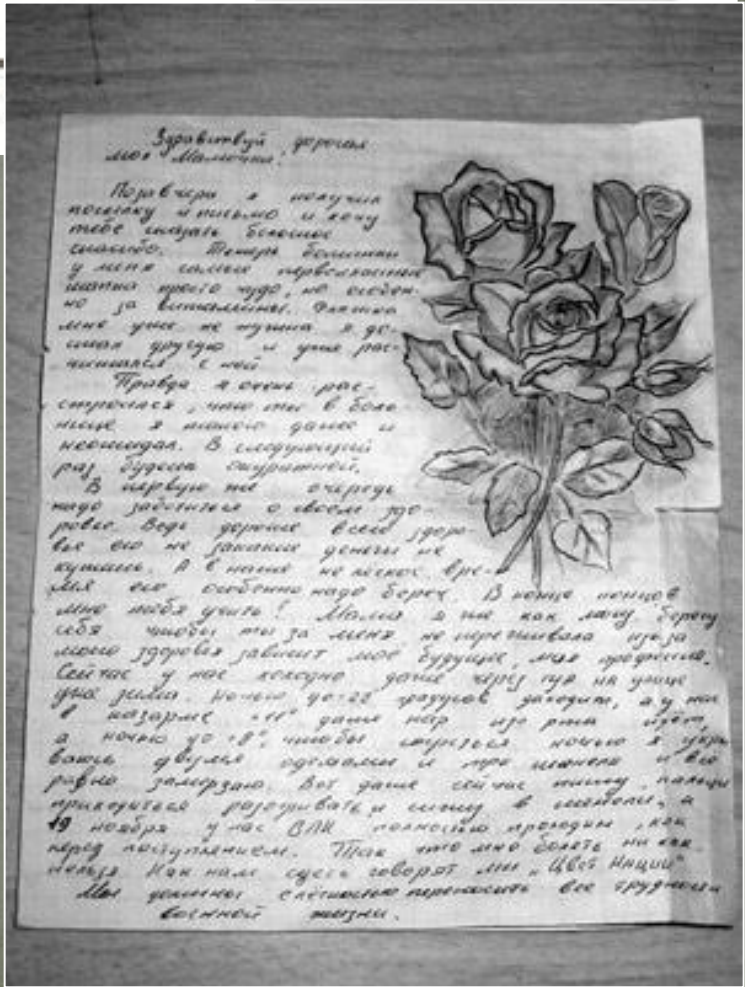 Здравствуй дорогая
моя Мамочка!
Позавчера я получил
посылку и письмо и хочу
тебе сказать большое
спасибо. Теперь ботинки
у меня самые первоклассные
шапка просто чудо, но особен-
но за витамины. Фляшка
мне уже не нужна я до-
стал другую и уже рас-
с ней
Правда я очень рас-
строился, что ты в боль-
нице я такого даже и
неожидал. В следующий
раз будешь окуратней.
В первую же очередь
надо заботиться о своем здо-
ровье. Ведь дороже всего здоро-
вье его не за деньги не
купишь. А в наше не вре-
мя его особенно надо береч. В конце концов
мне тебя учить! Мама я же как могу берегу
себя чтобы ты за меня не переживала из-за
моего здоровья зависит моё будущие, моя професия.
Сейчас у нас холодно даже через чур на улице
зима. Ночью до -22 градусов даходит, а у нас
в казарме +11° даже пар изо рта идёт,
а ночью до +8°, чтобы согреться ночью я укры-
ваюсь двумя одеялами и тре шинели и всё
равно замерзаю. Вот даже сейчас пишу, пальцы
приходиться разогревать, и сижу в шинели, а
19 ноября у нас ВЛК полностью проходим, как
перед поступлением. Так что мне болеть ни как
нельзя Как нам здесь говорят мы "Цвет Нации"
Мы должны с лёгкостью переносить все трудности
военной жизни.